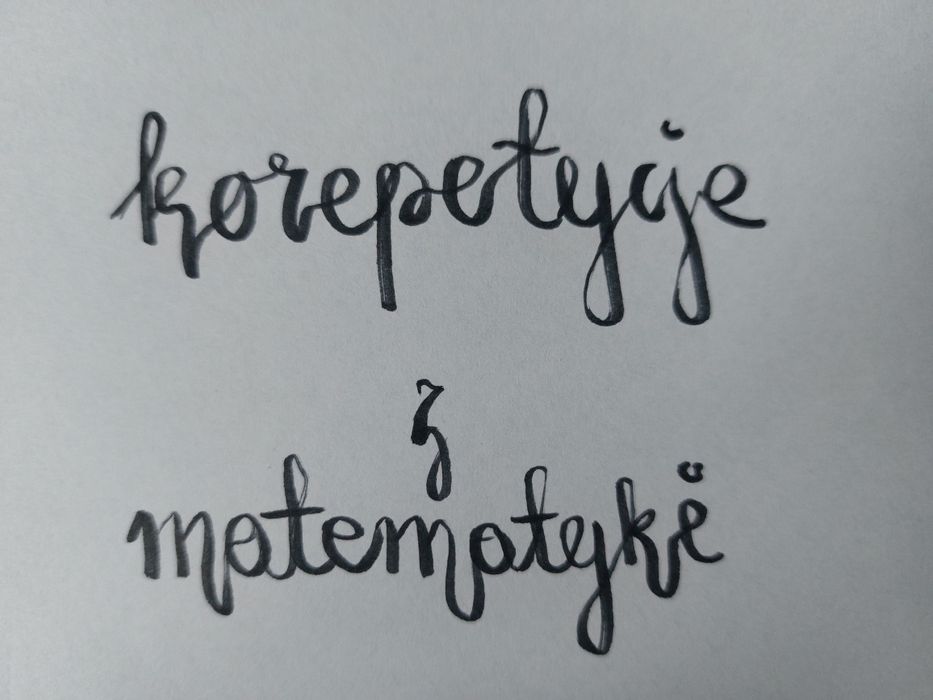 korepetycje
z
matematyki